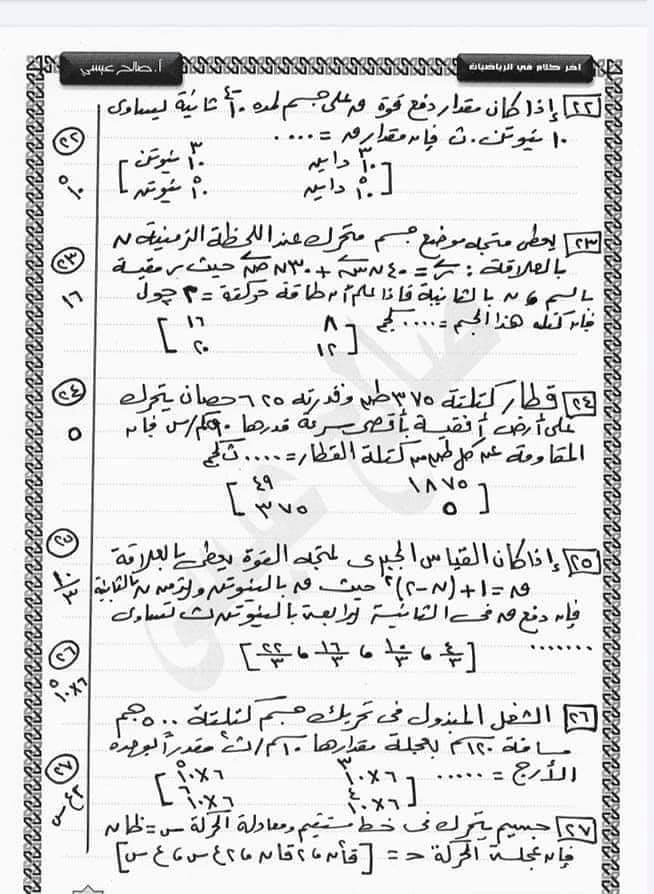 آخر كلام في الرياضيات
أ. صالح عيسى
٢٢ إذا كان مقدار دفع قوة ق على جسم لمدة ١٠⁻⁴ ثانية يساوى
١٠ نيوتن.ث فإن مقدار ق = ....
[ ١٠³ داين ١٠³ نيوتن
١٠⁵ داين ١٠⁵ نيوتن ]
٢٢
١٠⁵
٢٣ يعطى متجه موضع جسم متحرك عند اللحظة الزمنية ن
بالعلاقة: ر = ٤٠ ن س + ٣٠ ن ص حيث ر مقيسة
بالسم ، ن بالثانية فإذا علم أن طاقة حركته = ٢ چول
فإن كتلة هذا الجسم = .... كجم
[ ٨ ١٦
١٢ ٢٠ ]
٢٣
١٦
٢٤ قطار كتلته ٣٧٥ طن وقدرته ٦٢٥ حصان يتحرك
على أرض أفقية بأقصى سرعة قدرها ٩٠ كم/س فإن
المقاومة عن كل طن من كتلة القطار = .... ث كجم
[ ١٨٧٥ ٤٩
٥ ٣٧٥ ]
٢٤
٥
٢٥ إذا كان القياس الجبرى لمتجه القوة يعطى بالعلاقة
ق = ١ + (ن - ٢)² حيث ق بالنيوتن والزمن ن بالثانية
فإن دفع ق فى الثانية الرابعة بالنيوتن.ث تساوى
.......
[ ٤/٣ ، ١٠/٣ ، ١٦/٣ ، ٢٢/٣ ]
٢٥
١٠/٣
٢٦ الشغل المبذول فى تحريك جسم كتلته ٥٠٠ جم
مسافة ١٢٠ سم بعجلة مقدارها ١٠ سم/ث² مقدراً بوحدة
الأرج = .....
[ ٦×١٠³ ٦×١٠⁵
٦×١٠⁴ ٦×١٠⁶ ]
٢٦
٦×١٠⁵
٢٧ جسيم يتحرك فى خط مستقيم ومعادلة الحركة س = ظا ن
فإن عجلة الحركة ح = [ قا² ن ، ٢ قا ن ، ٢ ع س ، ع س ]
٢٧
٢ ع س